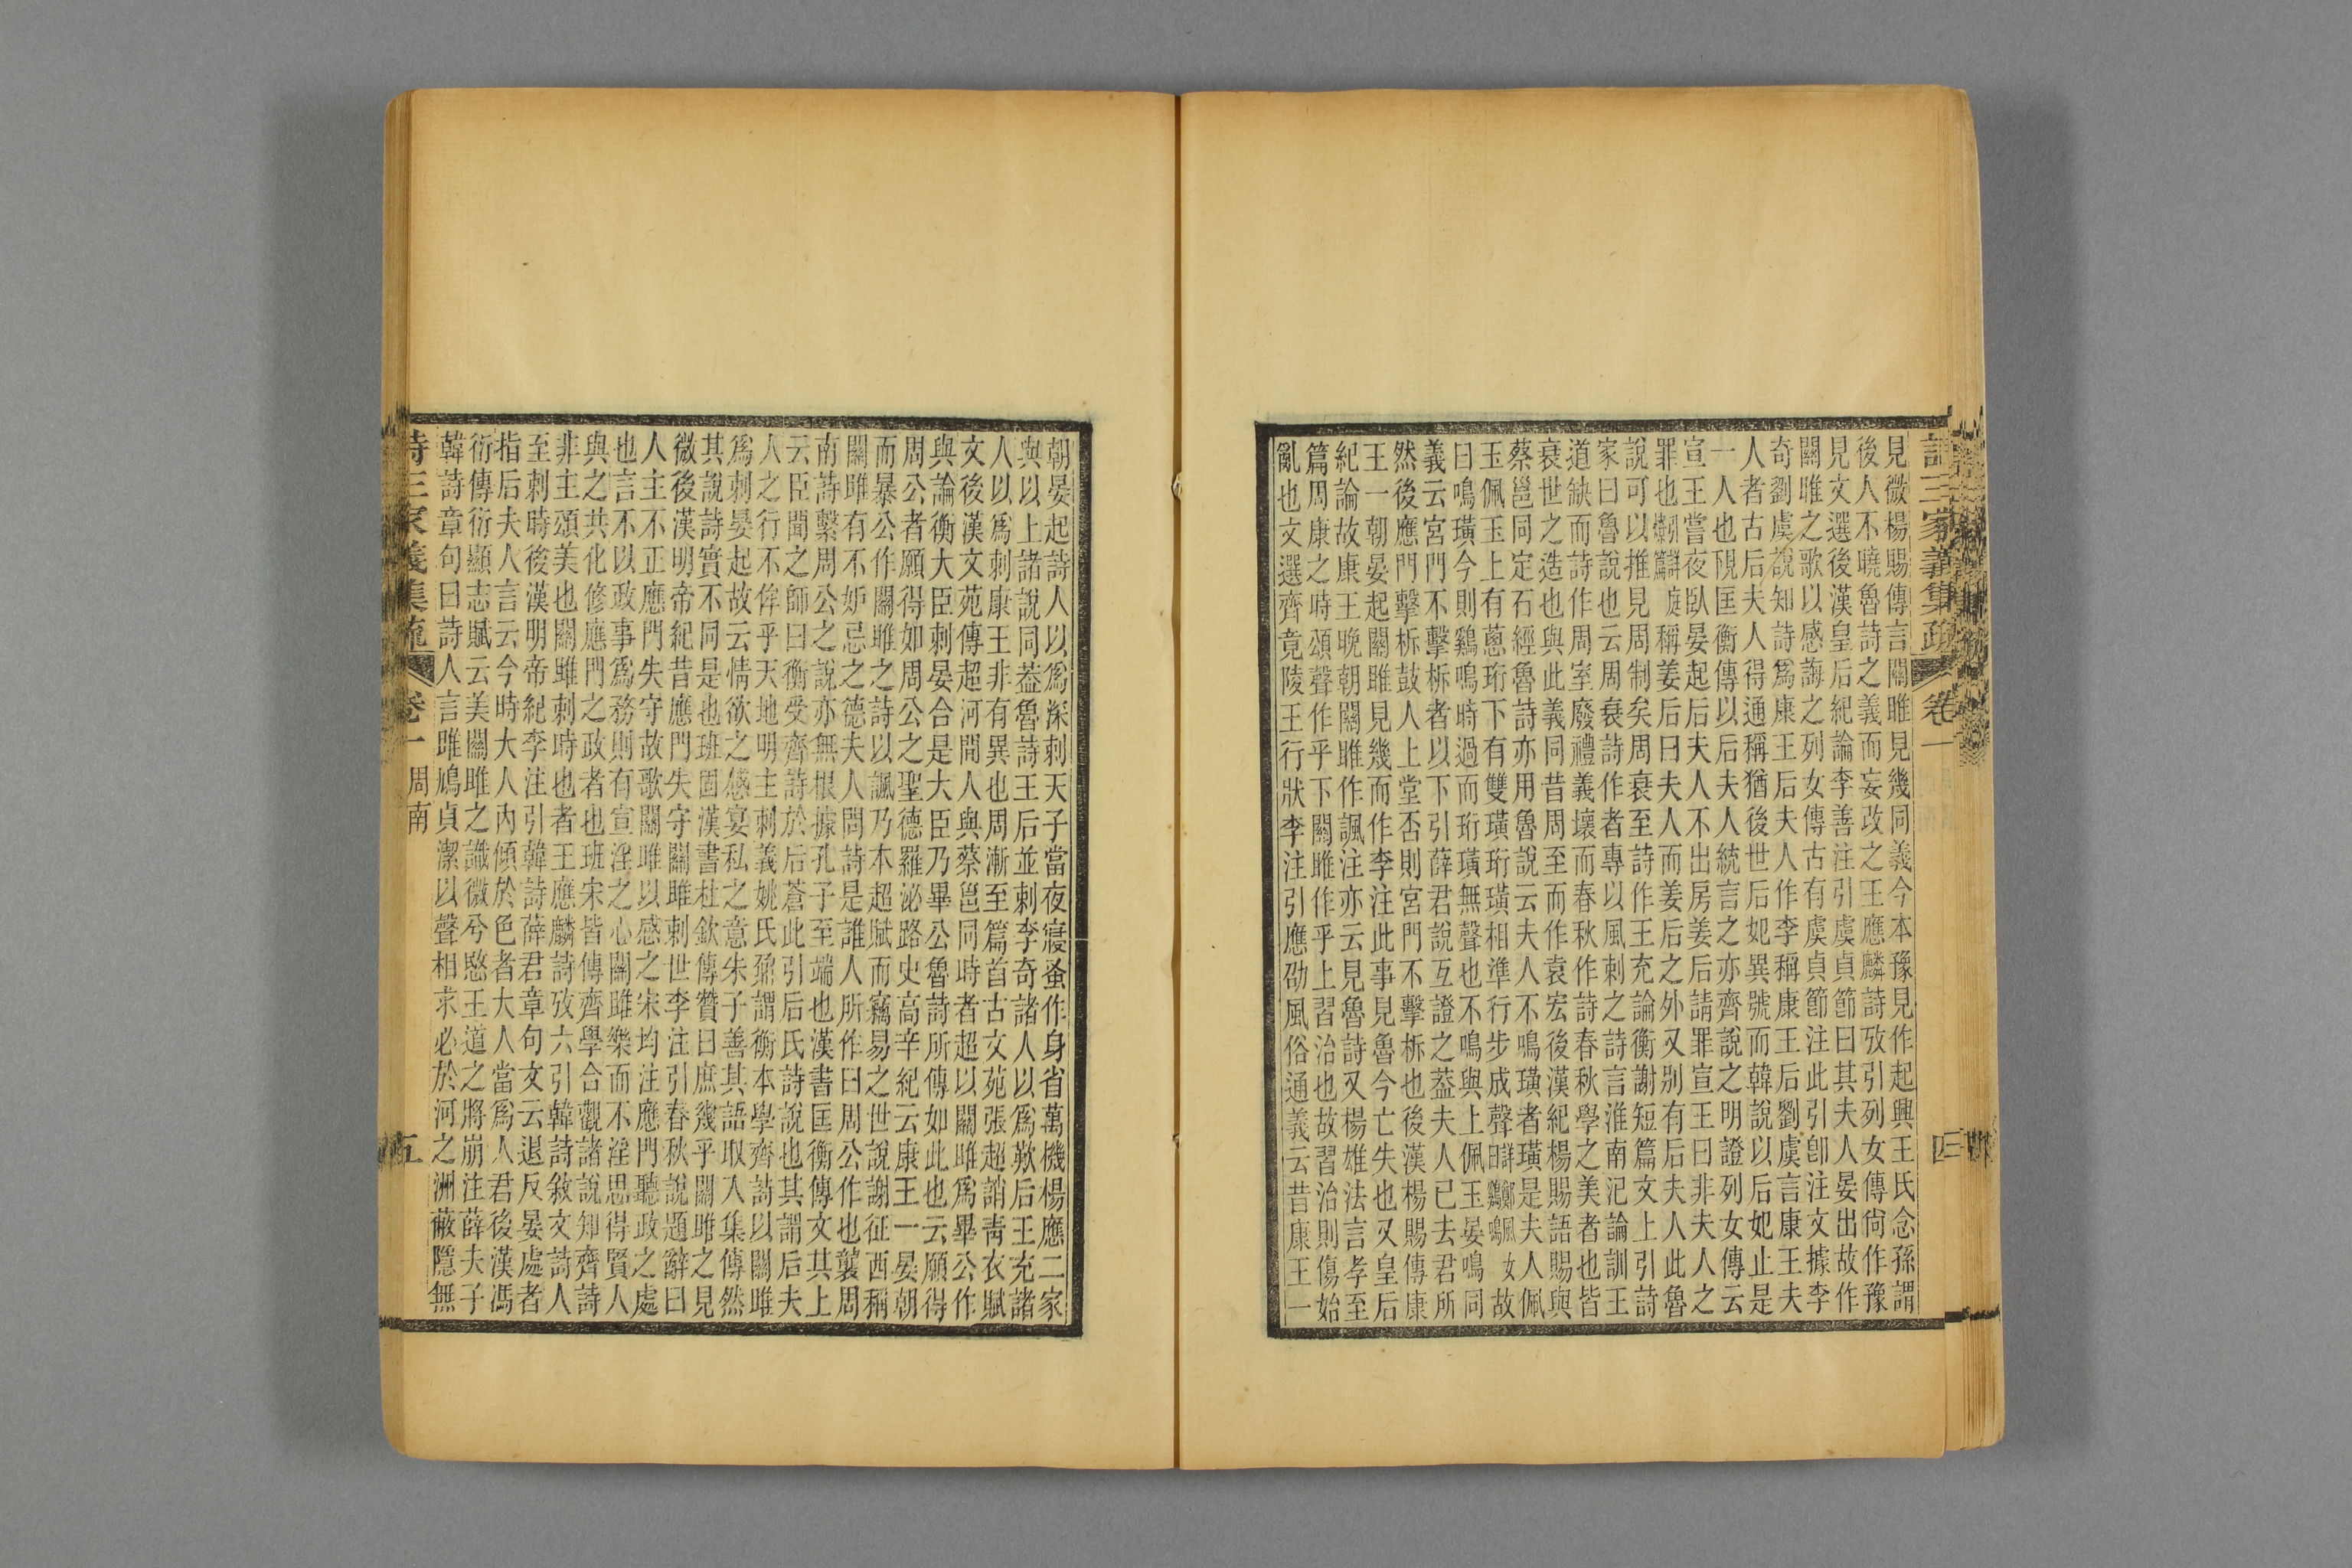 詩三家義集疏 卷一 四
見微楊賜傳言關雎見幾同義今本豫見作起興王氏念孫謂
後人不曉魯詩之義而妄改之王應麟詩攷引列女傳尙作豫
見文選後漢皇后紀論李善注引虞貞節曰其夫人晏出故作
關雎之歌以感誨之列女傳古有虞貞節注此引卽注文據李
奇劉虞說知詩爲康王后夫人作李稱康王后劉虞言康王夫
人者古后夫人得通稱猶後世后妃異號而韓說以后妃止是
一人也覑匡衡傳以后夫人統言之亦齊說之明證列女傳云
宣王嘗夜臥晏起后夫人不出房姜后請罪宣王曰非夫人之
罪也稱姜后曰夫人而姜后之外又別有后夫人此魯
說可以推見周制矣周衰至詩作王充論衡謝短篇文上引詩
家曰魯說也云周衰詩作者專以風刺之詩言淮南氾論訓王
道缺而詩作周室廢禮義壞而春秋作詩春秋學之美者也皆
衰世之造也與此義同昔周至而作袁宏後漢紀楊賜語賜與
蔡邕同定石經魯詩亦用魯說云夫人不鳴璜者璜是夫人佩
玉佩玉上有蔥珩下有雙璜珩璜相準行步成聲故
曰鳴璜今則鷄鳴時過而珩璜無聲也不鳴與上佩玉晏鳴同
義云宮門不擊柝者以下引薛君說互證之葢夫人已去君所
然後應門擊柝鼓人上堂否則宮門不擊柝也後漢楊賜傳康
王一朝晏起關雎見幾而作李注此事見魯今亡失也又皇后
紀論故康王晚朝關雎作諷注亦云見魯詩又楊雄法言孝至
篇周康之時頌聲作乎下關雎作乎上習治也故習治則傷始
亂也文選齊竟陵王行狀李注引應劭風俗通義云昔康王一
朝晏起詩人以爲深刺天子當夜寢蚤作身省萬機楊應二家
與以上諸說同葢魯詩王后並刺李奇諸人以爲歎后王充諸
人以爲刺康王非有異也周漸至篇首古文苑張超誚靑衣賦
文後漢文苑傳超河間人與蔡邕同時者超以關雎爲畢公作
與論衡大臣刺晏合是大臣乃畢公魯詩所傳如此也云願得
周公者願得如周公之聖德羅泌路史高辛紀云康王一晏朝
而暴公作關雎之詩以諷乃本超賦而竊易之世說謝征西稱
關雎有不妒忌之德夫人問詩是誰人所作曰周公作也襲周
南詩繫周公之說亦無根據孔子至端也漢書匡衡傳文其上
云臣聞之師曰衡受齊詩於后蒼此引后氏詩說也其謂后夫
人之行不侔乎天地明主刺義姚氏鼐謂衡本學齊詩以關雎
爲刺晏起故云情欲之感宴私之意朱子善其語取入集傳然
其說詩實不同是也班固漢書杜欽傳贊曰庶幾乎關雎之見
微後漢明帝紀昔應門失守關雎刺世李注引春秋說題辭曰
人主不正應門失守故歌關雎以感之宋均注應門聽政之處
也言不以政事爲務則有宣淫之心關雎樂而不淫思得賢人
與之共化修應門之政者也班宋皆傳齊學合觀諸說知齊詩
非主頌美也關雎刺時也者王應麟詩攷六引韓詩敘文詩人
至刺時後漢明帝紀李注引韓詩薛君章句文云退反晏處者
指后夫人言云今時大人內傾於色者大人當爲人君後漢馮
衍傳衍顯志賦云美關雎之識微兮愍王道之將崩注薛夫子
韓詩章句曰詩人言雎鳩貞潔以聲相求必於河之洲蔽隱無
詩三家義集疏 卷一 周南 五